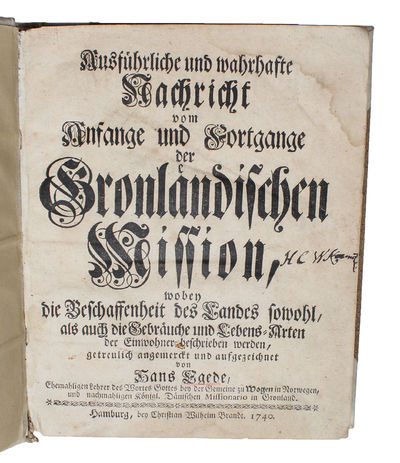 Ausführliche und wahrhafte
Nachricht
vom
Anfange und Fortgange
der
Grönländischen
Mission,
wobey
die Beschaffenheit des Landes sowohl,
als auch die Gebräuche und Lebens-Arten
der Einwohner beschrieben werden,
getreulich angemerckt und aufgezeichnet
von
Hans Egede,
Ehemahligen Lehrer des Wortes Gottes bey der Gemeine zu Wogen in Norwegen,
und nachmahligen Königl. Dänischen Missionario in Grönland.
Hamburg, bey Christian Wilhelm Brandt. 1740.